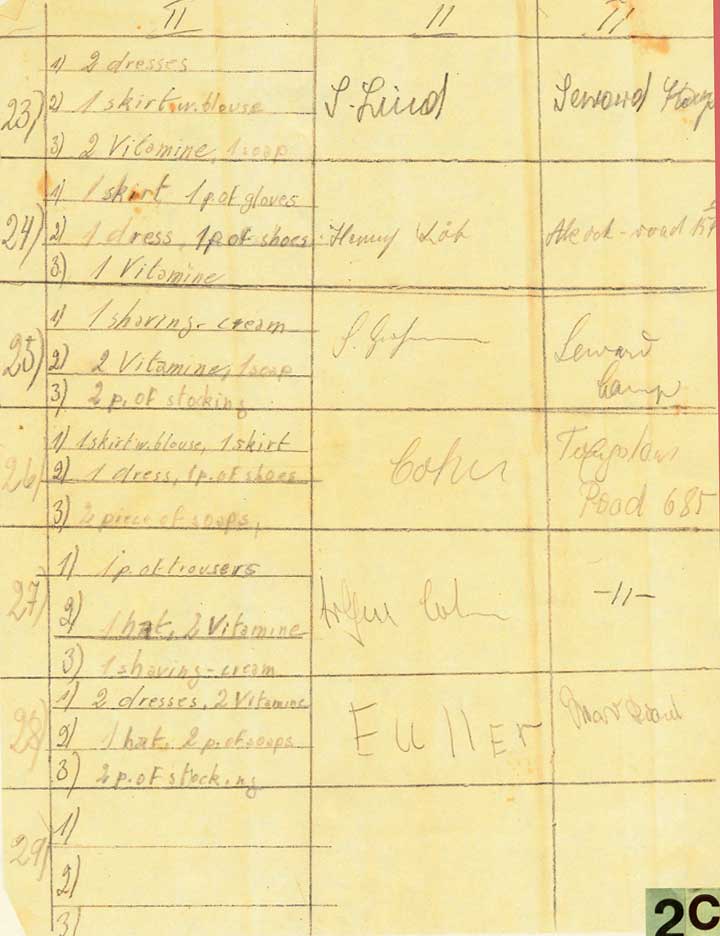 II 11 11
23) 1) 2 dresses
2) 1 skirt w. blouse S. Lind Seward
3) 2 Vitamine, 1 soap
24) 1) 1 skirt 1 p. of gloves
2) 1 dress, 1 p. of shoes Henny Löb road
3) 1 Vitamine
25) 1) 1 shaving-cream
2) 2 Vitamine, 1 soap Seward
3) 2 p. of stocking Camp
26) 1) 1 skirt w. blouse, 1 skirt
2) 1 dress, 1 p. of shoes Cohn
3) 2 piece of soaps, Road 685
27) 1) 1 p. of trousers
2) 1 hat, 2 Vitamine Cohn -11-
3) 1 shaving-cream
28) 1) 2 dresses, 2 Vitamine
2) 1 hat, 2 p. of soaps
3) 2 p. of stocking
29) 1)
2)
3)
2C